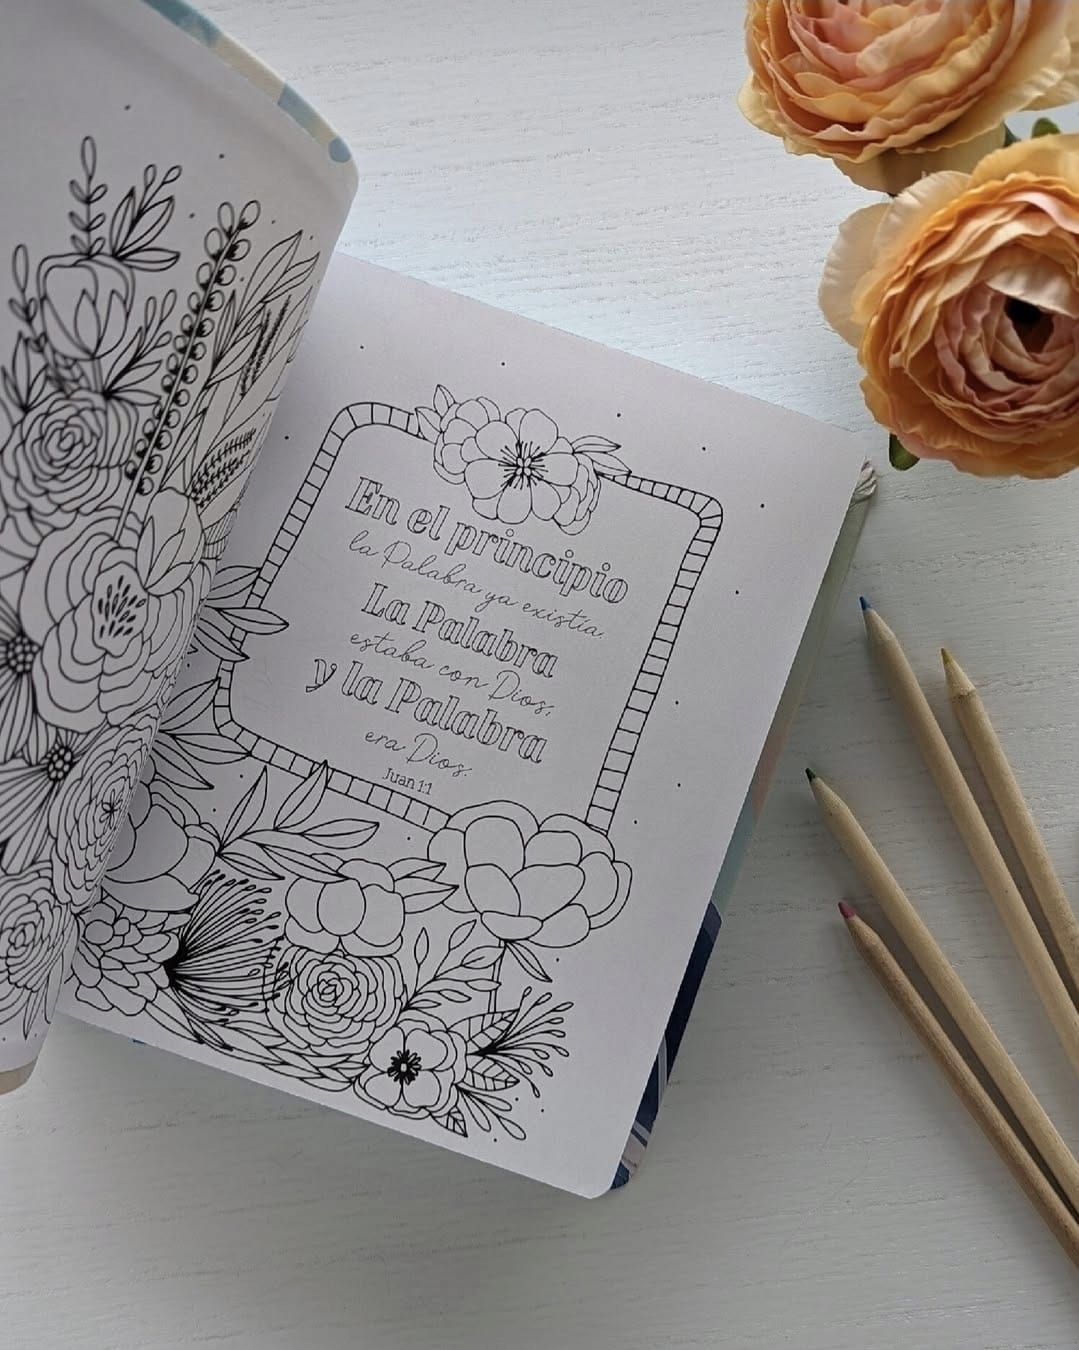 En el principio
la Palabra ya existía.
La Palabra
estaba con Dios,
y la Palabra
era Dios.
Juan 1:1